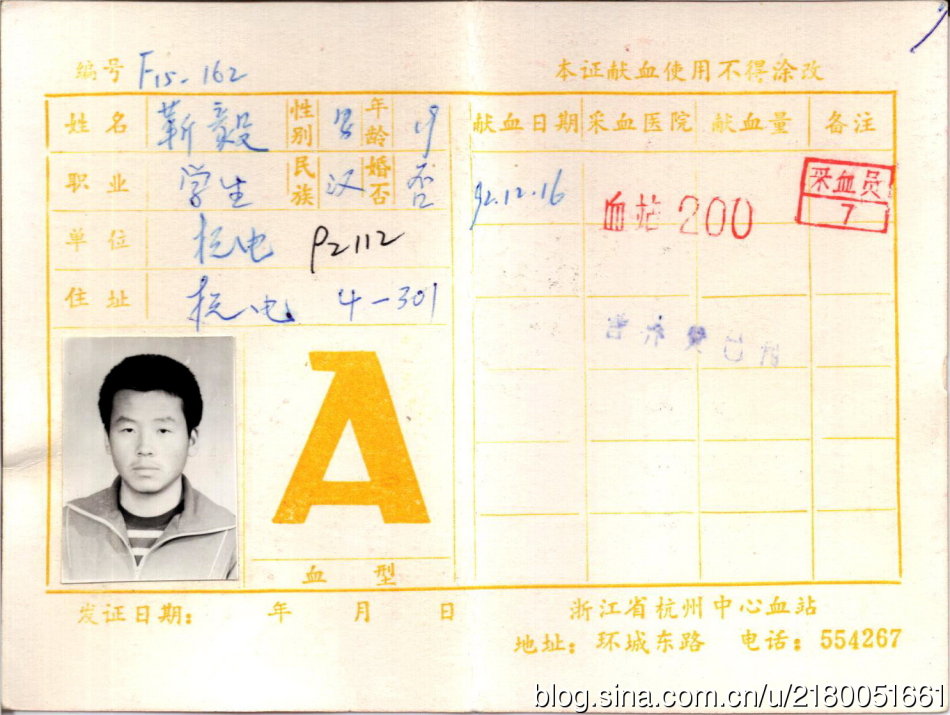 编号 F15-162
本证献血使用不得涂改
姓名 靳毅 性别 男 年龄 19
职业 学生 民族 汉 婚否 否
单位 机电 P2112
住址 机电 4-301
A
血型
发证日期: 年 月 日
献血日期 采血医院 献血量 备注
92.12.16 血站 200 采血员 7
营养费已付
浙江省杭州中心血站
地址: 环城东路 电话: 554267
blog.sina.com.cn/u/2180051661